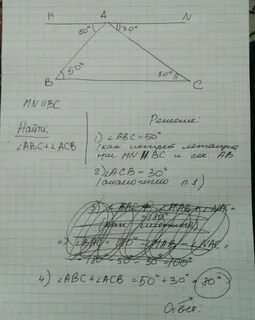 M A N
50° 30°
B 50° 30° C
MN || BC
Найти:
∠ABC + ∠ACB
Решение:
1) ∠ABC = 50°
(как накрест лежащие
при MN || BC и сек. AB
2) ∠ACB = 30°
(аналогично п.1)
4) ∠ABC + ∠ACB = 50° + 30° = 80°
Ответ: